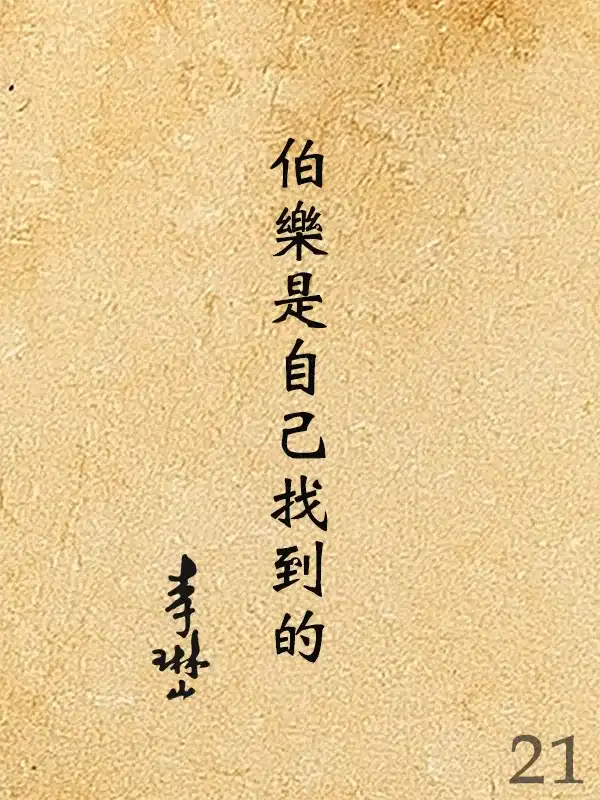 伯樂是自己找到的
李琳山
21